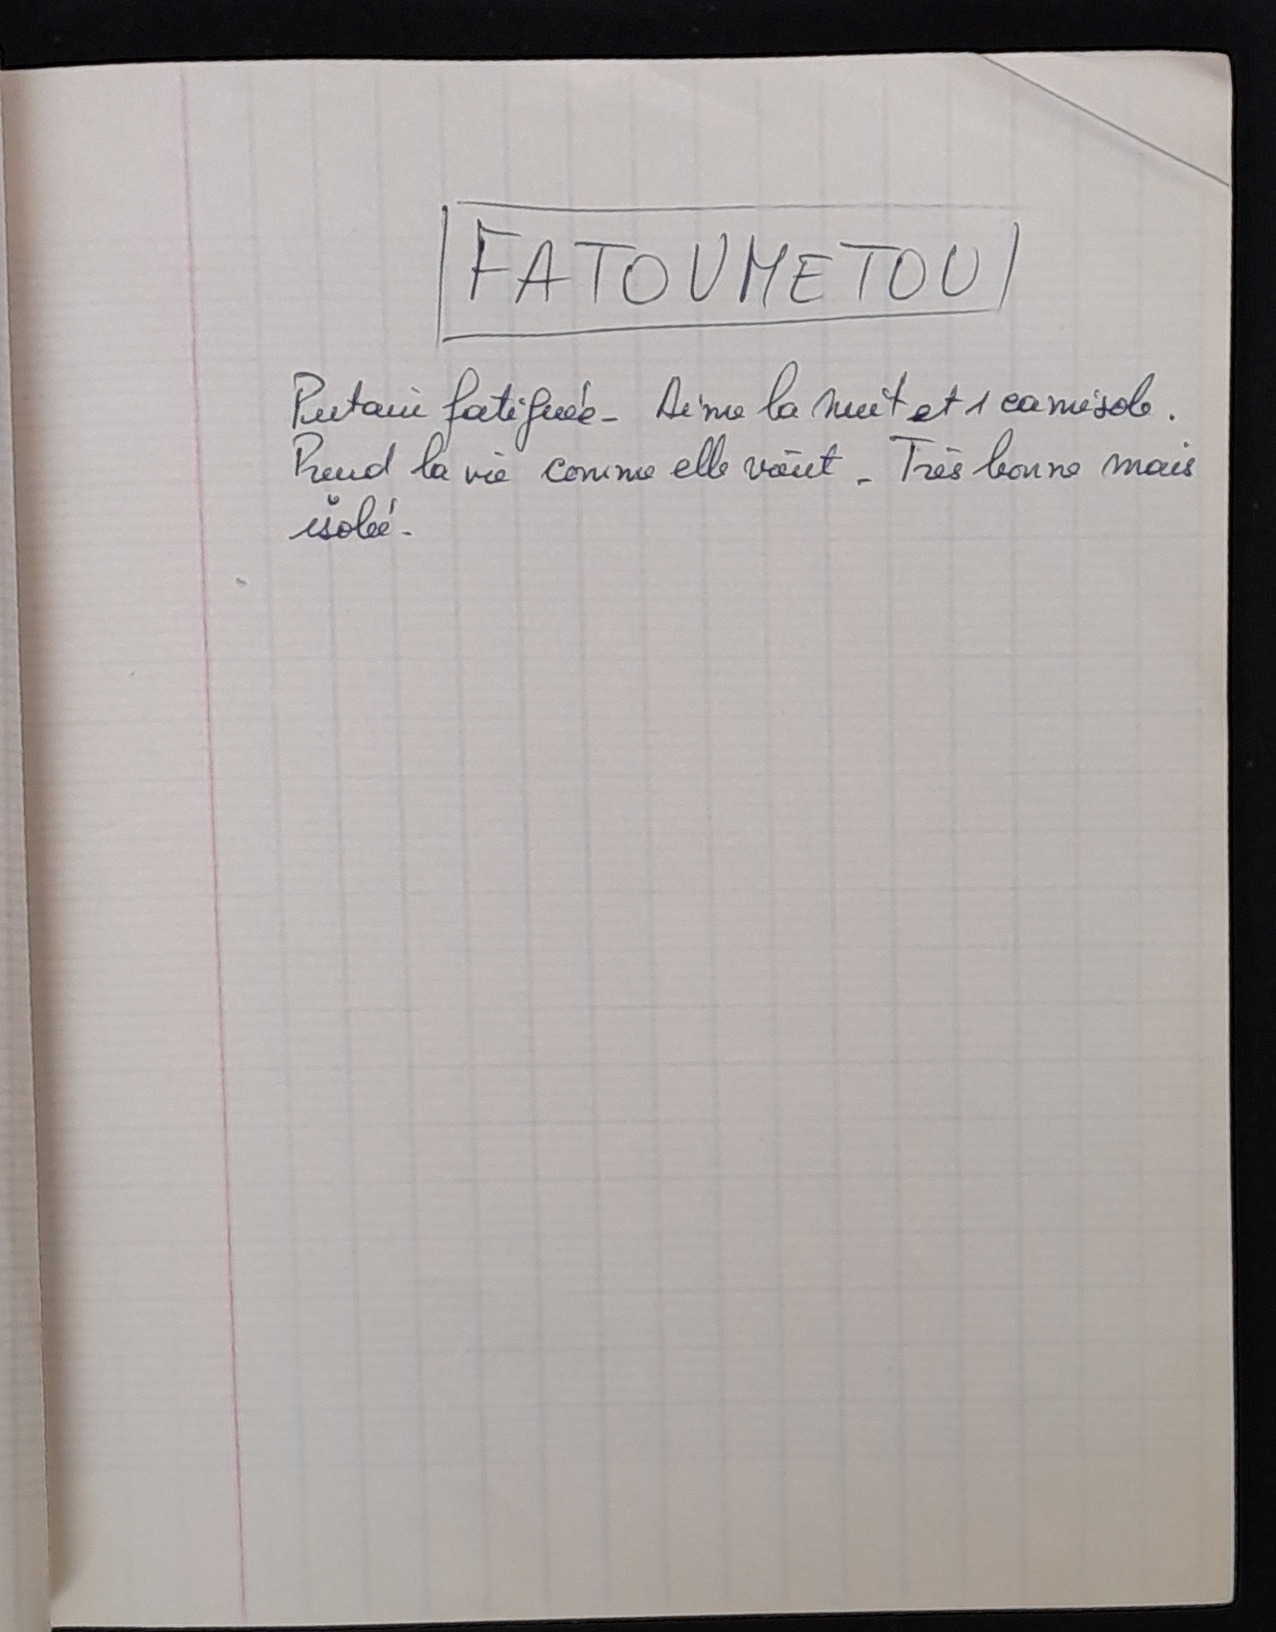 FATOUMETOU
Putain fatiguée - Aime la nuit et 1 camisole.
Prend la vie comme elle vient - Très bonne mais
isolée -